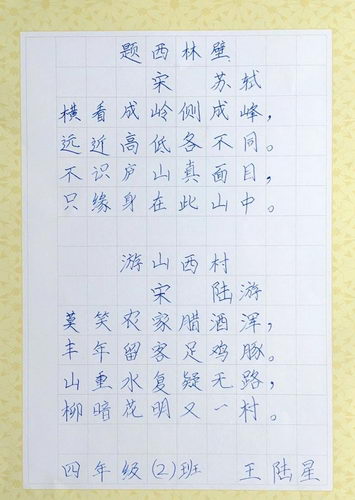 题西林壁
宋 苏轼
横看成岭侧成峰，
远近高低各不同。
不识庐山真面目，
只缘身在此山中。
游山西村
宋 陆游
莫笑农家腊酒浑，
丰年留客足鸡豚。
山重水复疑无路，
柳暗花明又一村。
四年级(2)班 王陆星